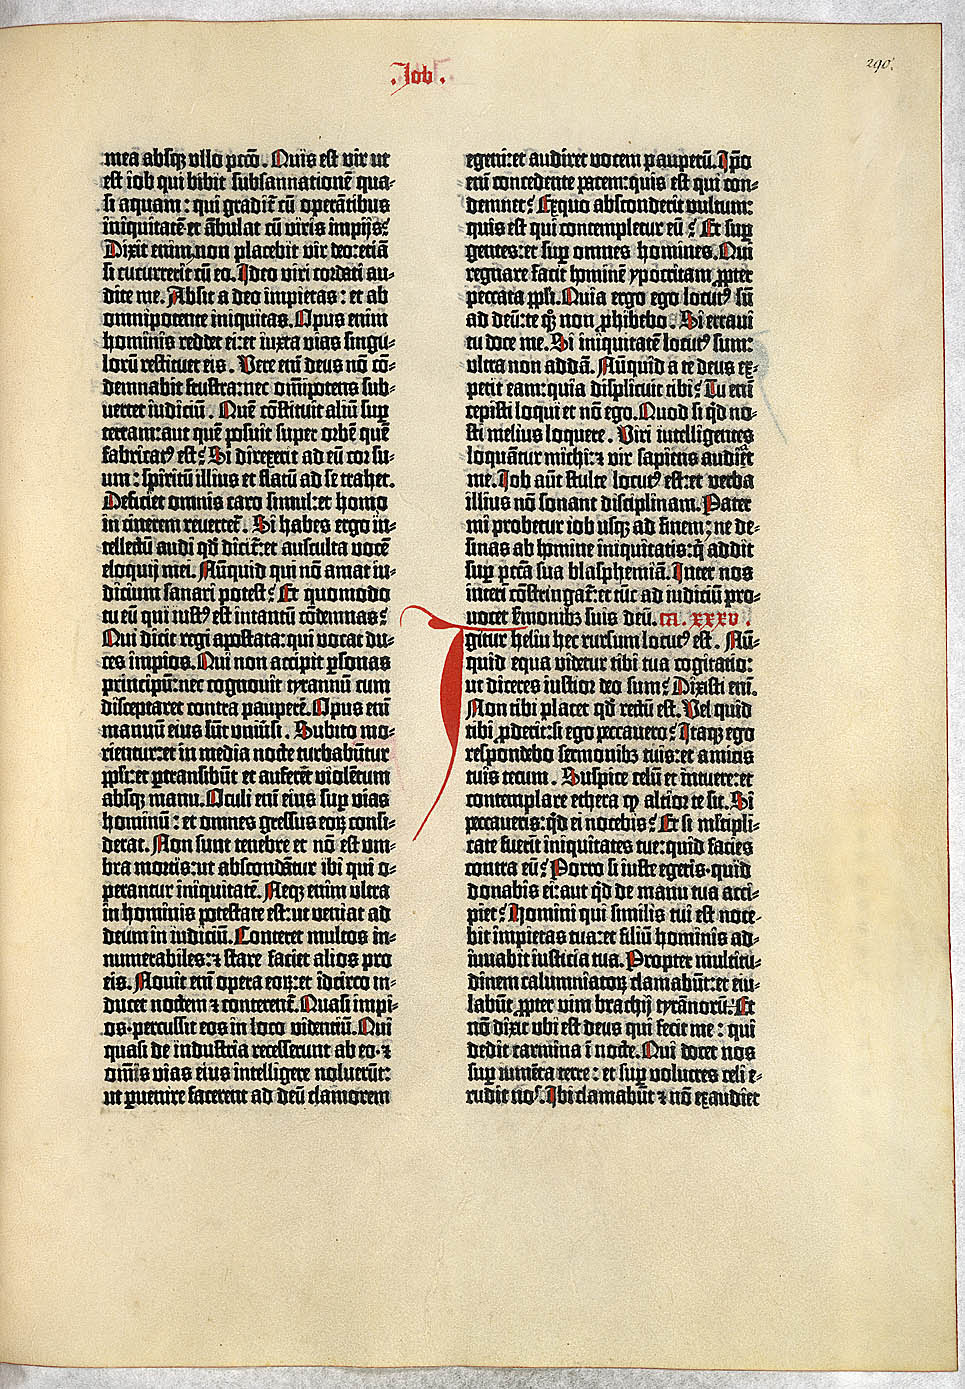 .Iob.
290.
mea absq̃ ullo pcc̃o. Quis est vir ut
est iob qui bibit subsannationē qua⸗
si aquam: qui gradit̃ cū operātibus
iniquitatē et ābulat cū viris impijs?
Dixit enim, non placebit vir deo: etiā
si cucurrerit cū eo. Ideo viri cordati au⸗
dite me. Absit a deo impietas: et ab
omnipotente iniquitas. Opus enim
hominis reddet ei: et iuxta vias singu⸗
lorū restituet eis. Vere em̄ deus nō cō⸗
demnabit frustra: nec om̄ipotens sub⸗
vertet iudiciū. Quē cōstituit aliū sup̲
terram: aut quē posuit super orbē quē
fabricatꝰ est? Si direxerit ad eū cor su⸗
um: spiritū illius et flatū ad se trahet.
Deficiet omnis caro simul: et homo
in cinerem revertet̃. Si habes ergo in⸗
tellectū audi qđ dicit̃: et ausculta vocē
eloquij mei. Nūquid qui nō amat iu⸗
dicium sanari potest? Et quomodo
tu eū qui iustꝰ est intantū cōdemnas?
Qui dicit regi apostata: qui vocat du⸗
ces impios. Qui non accipit ꝑsonas
principū: nec cognovit tyrannū cum
disceptaret contra pauperē. Opus em̄
manuū eius sūt univ̄si. Subito mo⸗
rientur: et in media nocte turbabūtur
pp̄li: et ꝑtransibūt et auferēt violētum
absq̃ manu. Oculi em̄ eius sup̲ vias
hominū: et omnes gressus eoꝝ consi⸗
derat. Non sunt tenebre et nō est um⸗
bra mortis: ut abscondātur ibi qui o⸗
perantur iniquitatē. Neq̃ enim ultra
in hominis potestate est: ut veniat ad
deum in iudiciū. Conteret multos in⸗
numerabiles: ⁊ stare faciet alios pro
eis. Novit em̄ opera eoꝝ: et idcirco in⸗
ducet noctem ⁊ conterent̃. Quasi impi⸗
os· percussit eos in loco videntiū. Qui
quasi de industria recesserunt ab eo· ⁊
om̄is vias eius intelligere noluerūt:
ut ꝑvenire facerent ad deū clamorem
egeni: et audiret vocem pauperū. Ip̄o
em̄ concedente pacem: quis est qui con⸗
demnet? Ex quo absconderit vultum:
quis est qui contempletur eū? Et sup̲
gentes: et sup̲ omnes homines. Qui
regnare facit hominē ypocritam ꝓpter
peccata pp̄li. Quia ergo ego locutꝰ sū
ad deū: te qꝫ non ꝓhibebo. Si erravi
tu doce me. Si iniquitatē locutꝰ sum:
ultra non addā. Nūquid a te deus ex⸗
petit eam: quia displicuit tibi? Tu em̄
cepisti loqui et nō ego. Quod si qđ no⸗
sti melius loquere. Viri intelligentes
loquātur michi: ⁊ vir sapiens audiet
me. Iob aūt stulte locutꝰ est: et verba
illius nō sonant disciplinam. Pater
mi probetur iob usq̃ ad finem: ne de⸗
sinas ab homine iniquitatis: q̇ addit
sup̲ pccā sua blasphemiā. Inter nos
interī cōstringat̃: et tūc ad iudiciū pro⸗
vocet s̄monibꝫ suis deū. ca. xxxv.
Igitur heliu hec rursum locutꝰ est. Nū⸗
quid equa videtur tibi tua cogitatio:
ut diceres iustior deo sum? Dixisti em̄.
Non tibi placet qđ rectū est. Vel quid
tibi ꝓderit: si ego peccavero? Itaq̃ ego
respondebo sermonibꝫ tuis: et amicis
tuis tecum. Suspice celū et intuere: et
contemplare ethera ꝙ altior te sit. Si
peccaveris: qđ ei nocebis? Et si ml̄tipli⸗
cate fuerīt iniquitates tue: quid facies
contra eū? Porro si iuste egeris· quid
donabis ei: aut qđ de manu tua acci⸗
piet? Homini qui similis tui est noce⸗
bit impietas tua: et filiū hominis ad⸗
iuvabit iusticia tua. Propter multitu⸗
dinem calumniatoꝝ clamabūt: et eiu⸗
labūt ꝓpter vim brachij tyrānorū. Et
nō dixit ubi est deus qui fecit me: qui
dedit carmina ī nocte. Qui docet nos
sup̲ iumēta terre: et sup̲ volucres celi e⸗
rudit nos. Ibi clamabūt ⁊ nō exaudiet